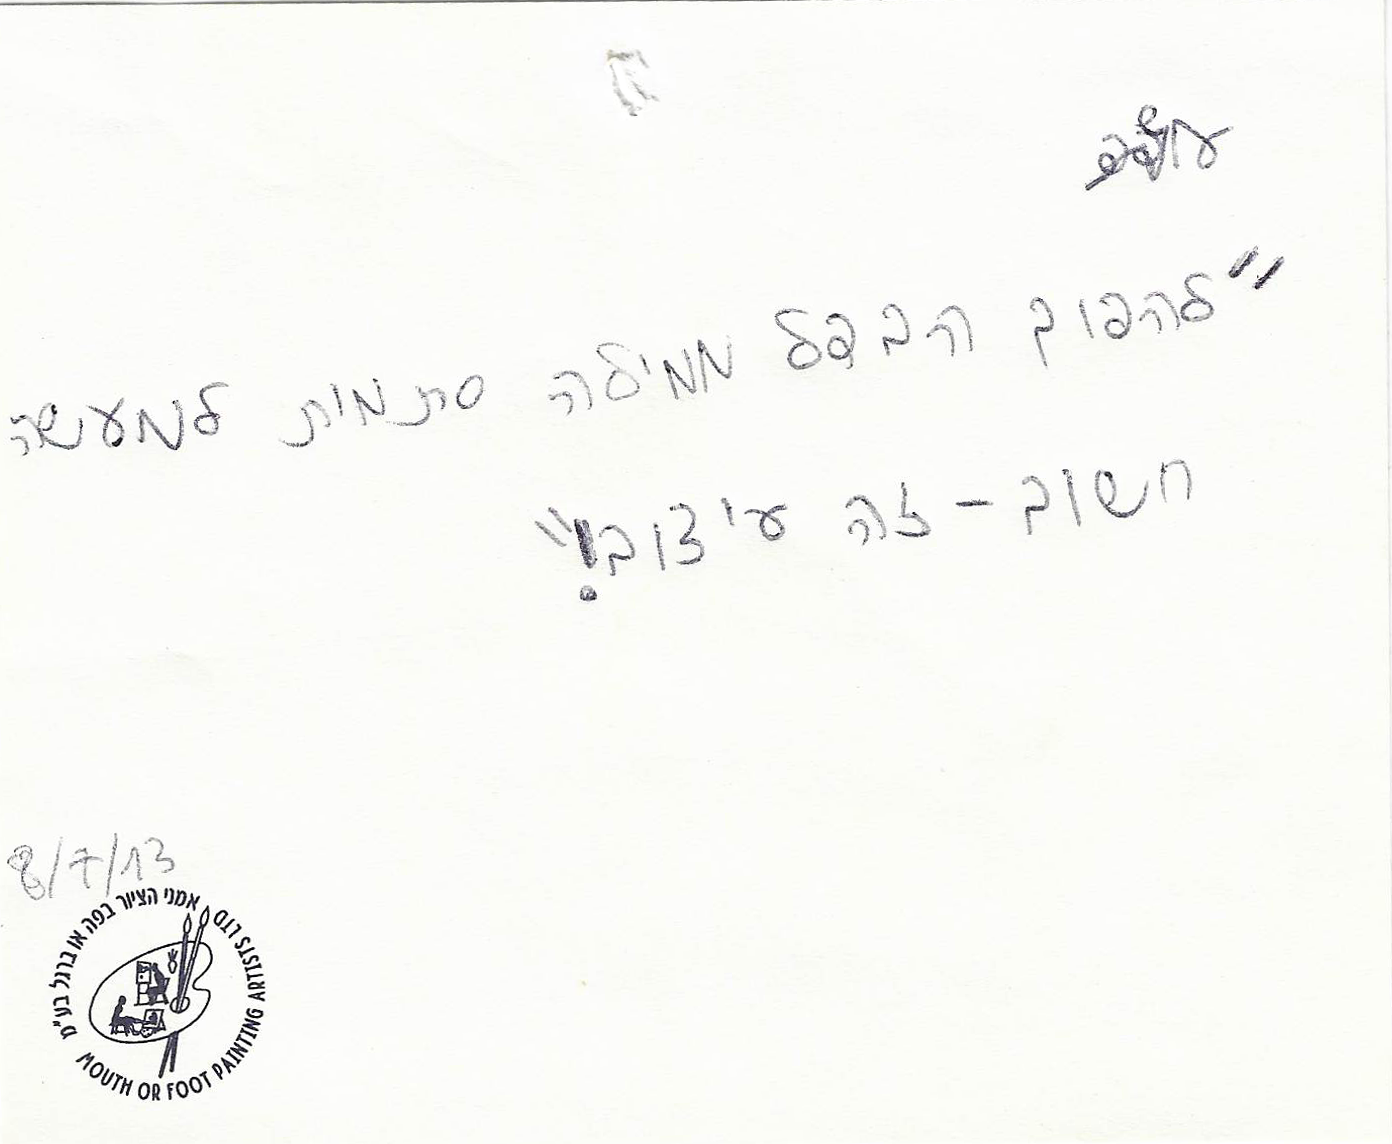 "להפוך ממילה סתמית למעשה
חשוב - זה עיצוב!"
8/7/13
אמני הציור בפה או ברגל בע"מ
MOUTH OR FOOT PAINTING ARTISTS LTD